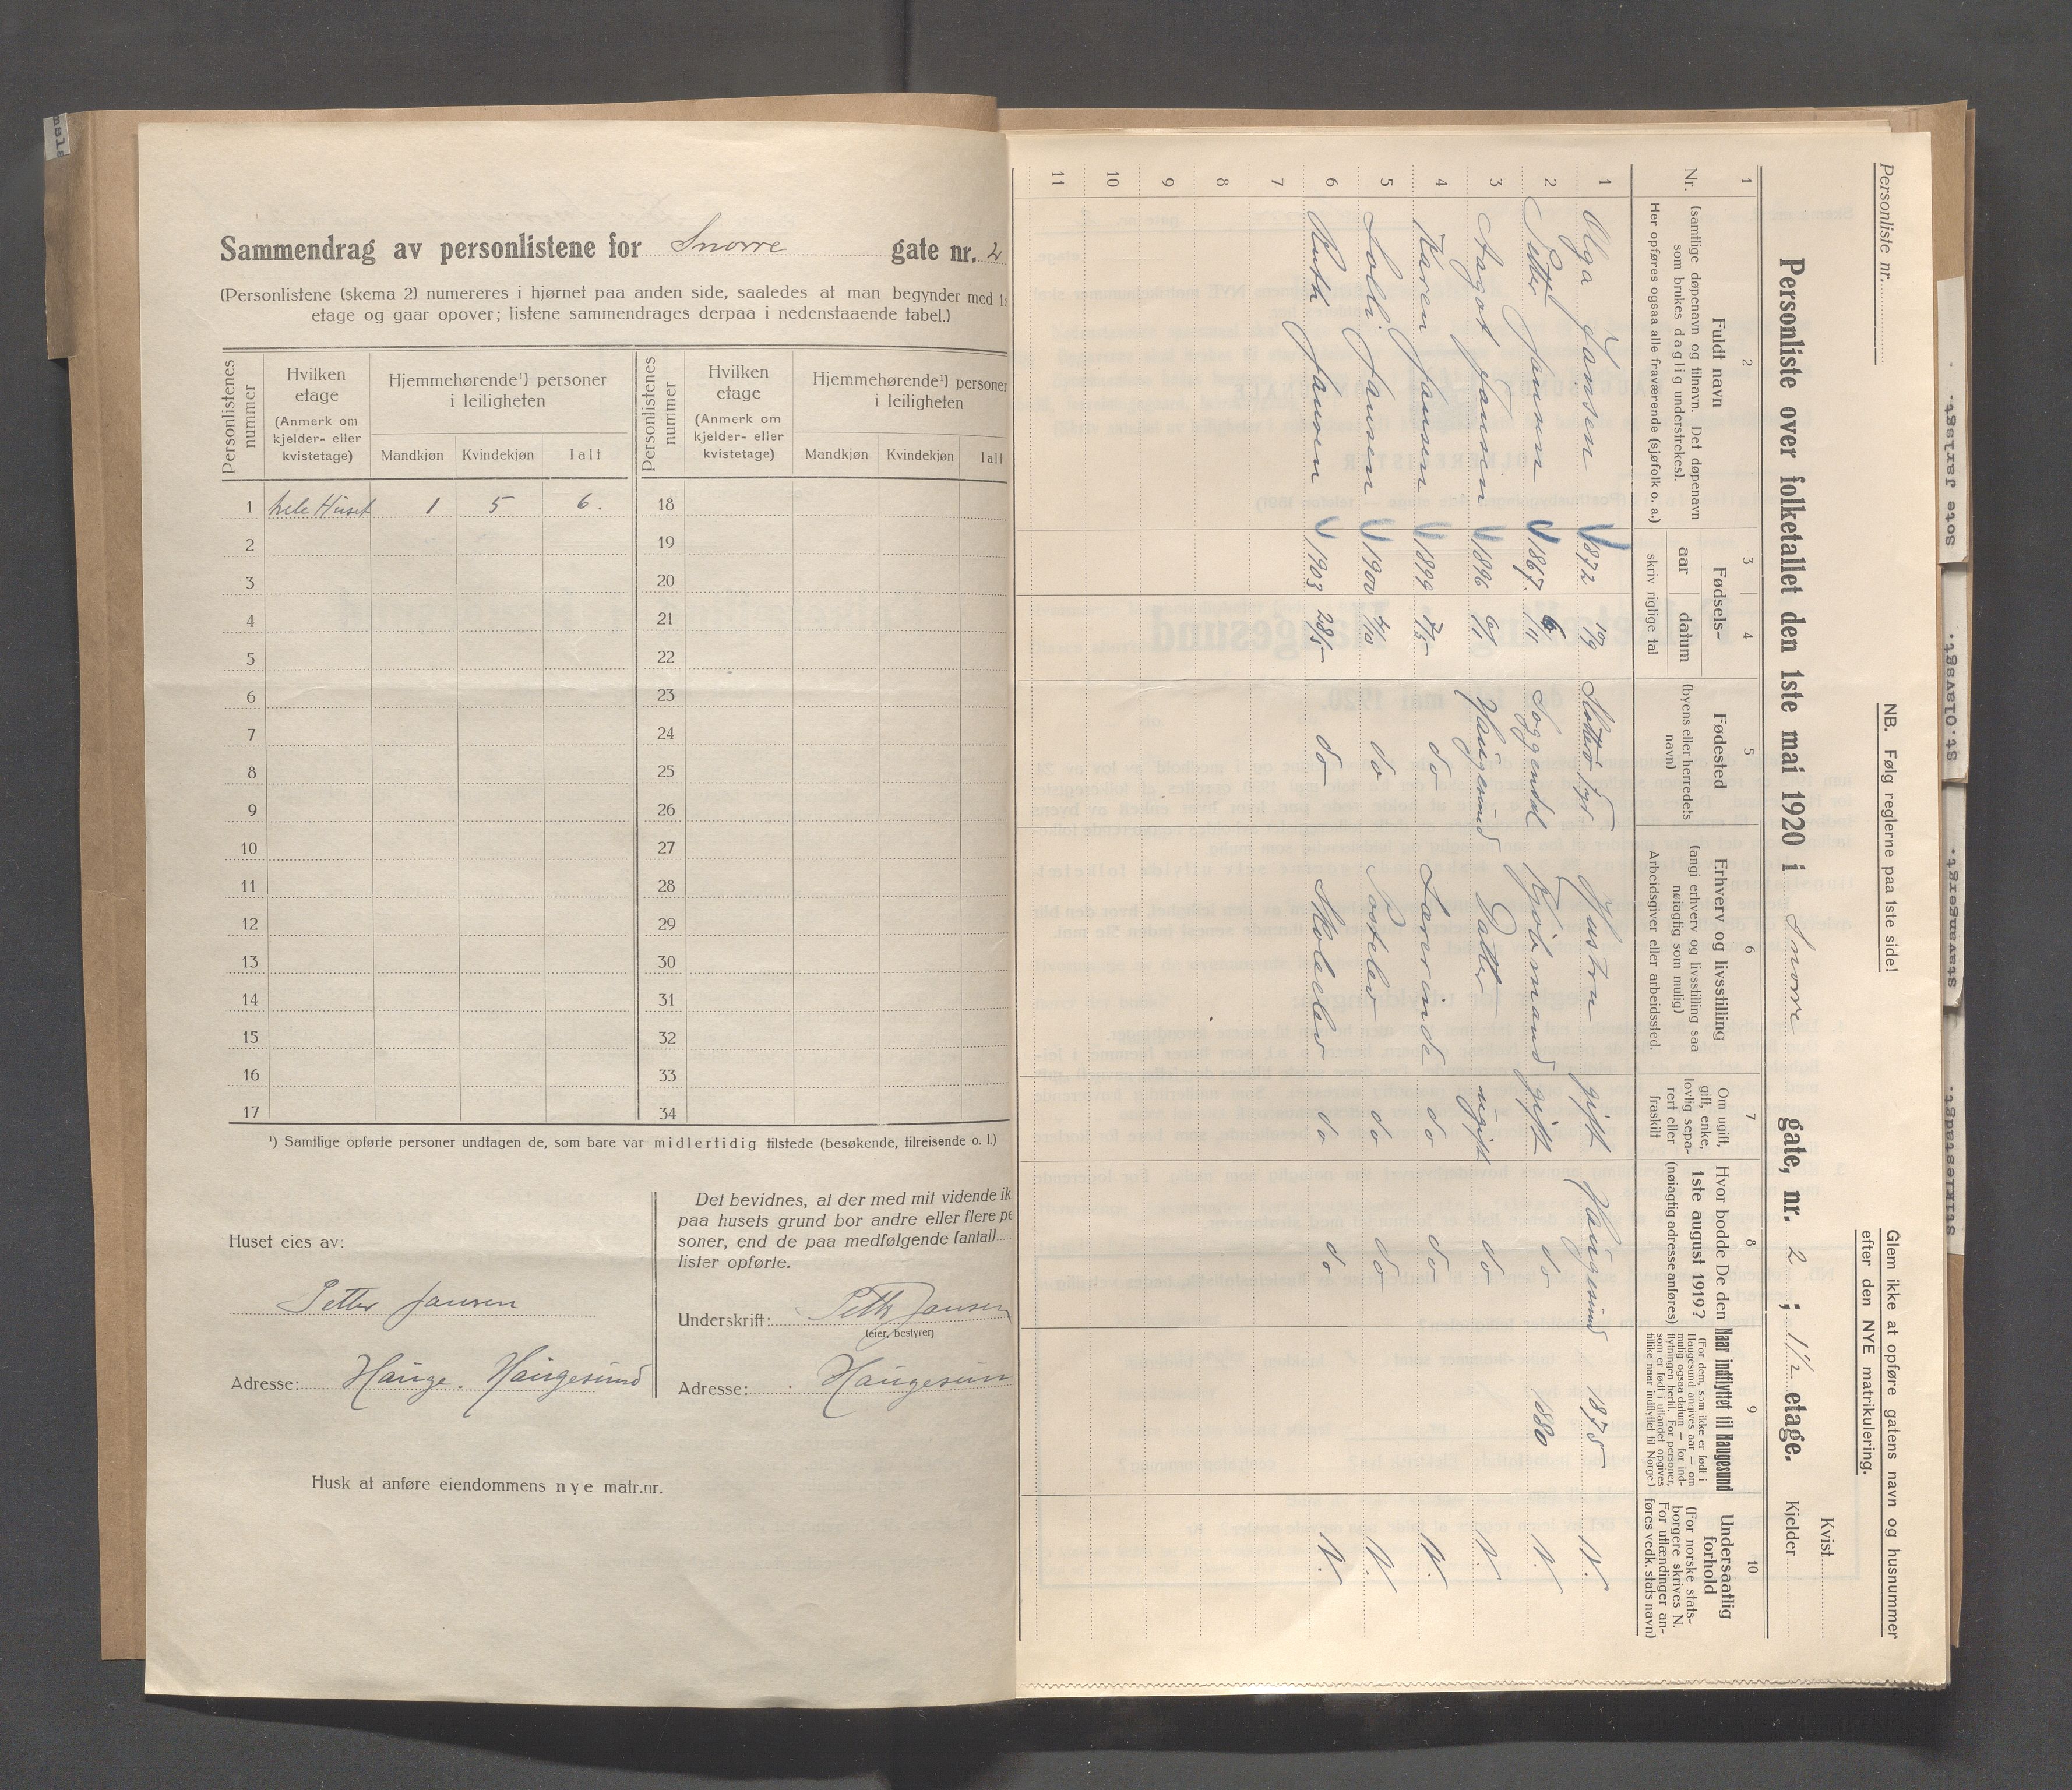 Sammendrag av personlistene for Snorre gate nr. 2
(Personlistene (skema 2) numereres i hjørnet paa anden side, saaledes at man begynder med 1s
etage og gaar opover; listene sammendrages derpaa i nedenstaaende tabel.)
Personlistenes nummer
Hvilken etage
(Anmerk om kjelder- eller kvistetage)
Hjemmehørende¹) personer i leiligheten
Mandkjøn Kvindekjøn Ialt
Personlistenes nummer
Hvilken etage
(Anmerk om kjelder- eller kvistetage)
Hjemmehørende¹) personer i leiligheten
Mandkjøn Kvindekjøn Ialt
1 hele Huset 1 5 6. 18
2 19
3 20
4 21
5 22
6 23
7 24
8 25
9 26
10 27
11 28
12 29
13 30
14 31
15 32
16 33
17 34
¹) Samtlige opførte personer undtagen de, som bare var midlertidig tilstede (besøkende, tilreisende o. l.)
Huset eies av:
Petter Jansen
Adresse: Hauge. Haugesund
Det bevidnes, at der med mit vidende ik
paa husets grund bor andre eller flere pe
soner, end de paa medfølgende (antal)
lister opførte.
Underskrift: Jansen
(eier, bestyrer)
Adresse: Haugesun
Husk at anføre eiendommens nye matr.nr.
Personliste nr.
NB. Følg reglerne paa 1ste side!
Glem ikke at opføre gatens navn og husnummer
efter den NYE matrikulering.
Kvist
Personliste over folketallet den 1ste mai 1920 i Snorre gate, nr. 2 ; 1½ etage.
Kjelder
1 2 3 4 5 6 7 8 9 10
Nr.
Fuldt navn
(samtlige døpenavn og tilnavn. Det døpenavn
som brukes daglig understrekes).
Her opføres ogsaa alle fraværende (sjøfolk o. a.)
Fødsels-
aar datum
skriv rigtige tal
Fødested
(byens eller herredets
navn)
Erhverv og livsstilling
(angi erhverv og livsstilling saa
nøiagtig som mulig)
Arbeidsgiver eller arbeidssted.
Om ugift,
gift, enke,
lovlig sepa-
rert eller
fraskilt
Hvor bodde De den
1ste august 1919?
(nøiagtig adresse anføres)
Naar indflyttet til Haugesund
(For dem, som ikke er født i
Haugesund angives aar — om
mulig ogsaa datum — for ind-
flytningen hertil. For personer,
som er født i utlandet opgives
tillike naar indflyttet til Norge.)
Undersaatlig
forhold
(For norske stats-
borgere skrives N.
For utlændinger an-
føres vedk. stats navn)
1 Olga Jansen 1872 Hustru gift Haugesund 1875 N.
2 Petter Jansen 1867. 6/11 Soggendal Kjøbmand gift do 1880 N.
3 Aagot Jansen 1896 Haugesund Datter ugift do N.
4 Karen Jansen 1899 do Lærerinde do do N.
5 Solli Jansen 1900 do Postelev do do N.
6 Ruth Jansen 1903 28/5 do Skoleelev do do N.
7
8
9
10
11
Sote Jarlsgt.
St.Olavsgt.
Stavangergt.
Stiklestadgt.